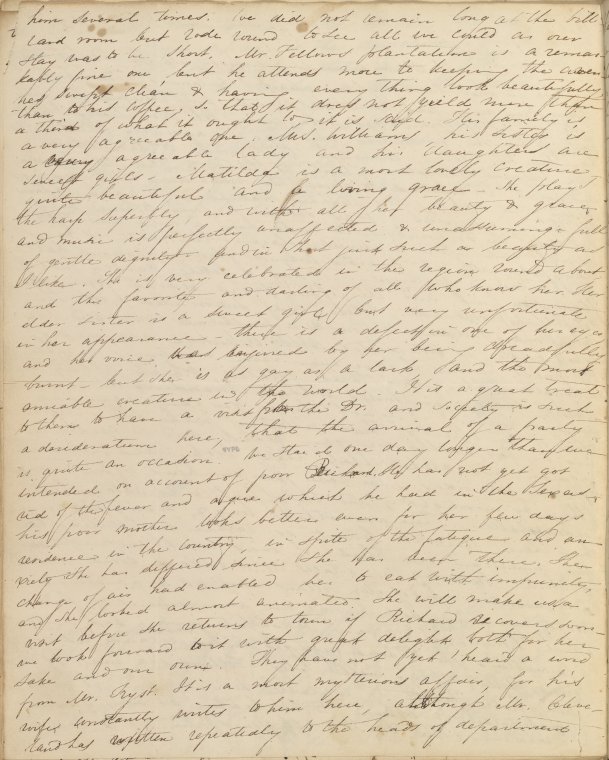 him several times. We did not remain long at the bill
iard room but rode round to see all we could as our
stay was to be short. Mr. Fellows plantation is a remar
kably fine one, but he attends more to keeping the
neg swept clean & having every thing look beautifully
than to his coffee, so that it does not yield more than
a third of what it ought to it is said. His family is
a very agreeable one. Mrs. Williams his sister is
a agreeable lady and his daughters are
sweet girls. Matilda is a most lovely creature
quite beautiful and a living grace. She plays
the harp superbly, and with all her beauty & grace
and music is perfectly unaffected & unassuming, full
of gentle dignity and in short just such a beauty as
I like. She is very celebrated in the region round about
and the favorite and darling of all who know her. Her
elder sister is a sweet girl but very unfortunate
in her appearance - there is a defect in one of her eyes
and her voice was injured by her being dreadfully
burnt - but she is as gay as a lark and the most
amiable creature in the world. It is a great treat
to them to have a visit from the Dr. and society is such
a desideratum here, that the arrival of a party
is quite an occasion. We staid one day longer than we
intended on account of poor Richard. He has not yet got
rid of the fever and ague which he had in the Texas.
his poor mother looks better even for her few days
residence in the country, in spite of the fatigue and an
xiety she has suffered since she has been there. The
change of air had enabled her to eat with impunity,
and she looked almost animated. She will make us a
visit before she returns to town if Richard recovers soon.
we look forward to it with great delight both for her
sake and our own. They have not yet heard a word
from Mr. It is a most mysterious affair for his
wife constantly writes to him here, although Mr. Cleve-
land has written repeatedly to the heads of department